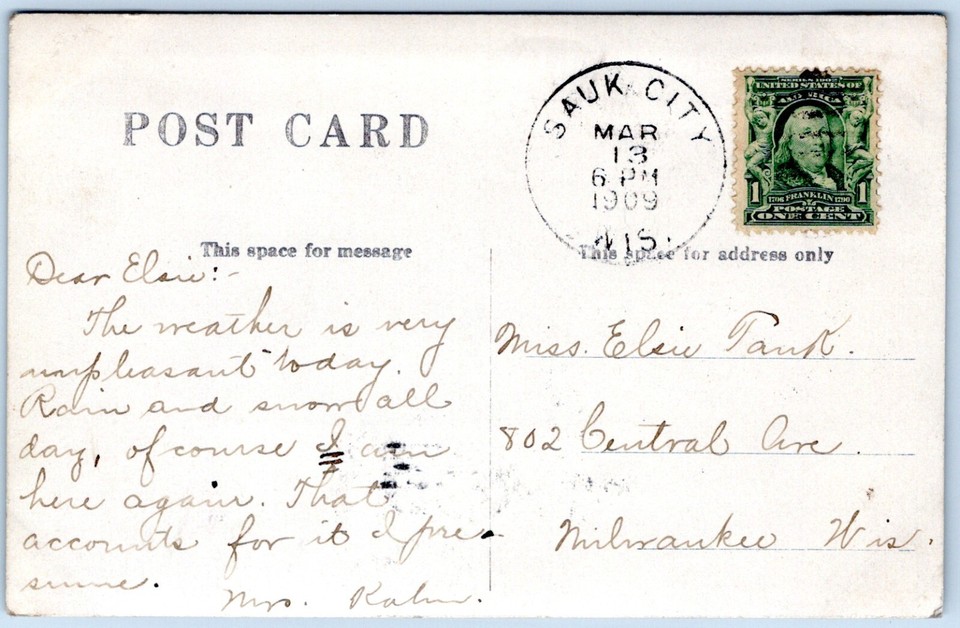 POST CARD
SAUK CITY
MAR
13
6 PM
1909
WIS.
SERIES 1902
UNITED STATES OF AMERICA
1 1
1706 FRANKLIN 1790
POSTAGE
ONE CENT
This space for message
This space for address only
Dear Elsie:-
The weather is very
unpleasant today.
Rain and snow all
day, of course I am
here again. That
accounts for it I pre-
sume.
Mrs. Kahn.
Miss. Elsie Tank.
802 Central Ave.
Milwaukee Wis.